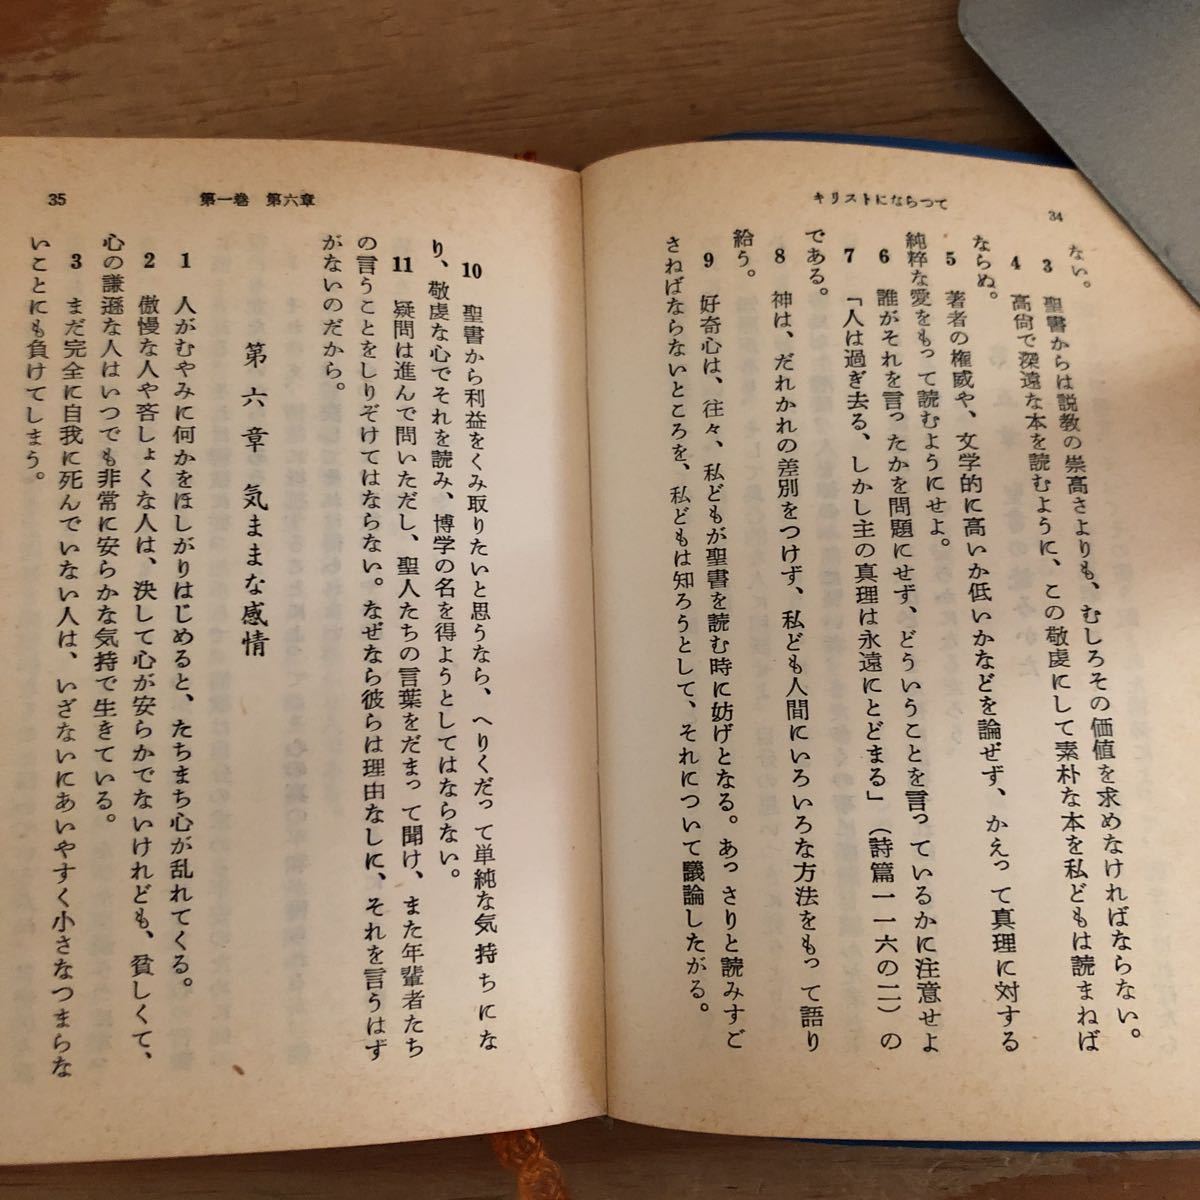 34
キリストにならつて
ない。
3 聖書からは説教の崇高さよりも、むしろその価値を求めなければならない。
4 高尙で深遠な本を読むように、この敬虔にして素朴な本を私どもは読まねば
ならぬ。
5 著者の権威や、文学的に高いか低いかなどを論ぜず、かえって真理に対する
純粋な愛をもって読むようにせよ。
6 誰がそれを言ったかを問題にせず、どういうことを言っているかに注意せよ
7 「人は過ぎ去る、しかし主の真理は永遠にとどまる」(詩篇一一六の二)の
である。
8 神は、だれかれの差別をつけず、私ども人間にいろいろな方法をもって語り
給う。
9 好奇心は、往々、私どもが聖書を読む時に妨げとなる。あっさりと読みすど
さねばならないところを、私どもは知ろうとして、それについて議論したがる。
第一巻 第六章
35
10 聖書から利益をくみ取りたいと思うなら、へりくだって単純な気持ちにな
り、敬虔な心でそれを読み、博学の名を得ようとしてはならない。
11 疑問は進んで問いただし、聖人たちの言葉をだまって聞け、また年輩者たち
の言うことをしりぞけてはならない。なぜなら彼らは理由なしに、それを言うはず
がないのだから。
第六章 気ままな感情
1 人がむやみに何かをほしがりはじめると、たちまち心が乱れてくる。
2 傲慢な人や吝しょくな人は、決して心が安らかでないけれども、貧しくて、
心の謙遜な人はいつでも非常に安らかな気持で生きている。
3 まだ完全に自我に死んでいない人は、いざないにあいやすく小さなつまらな
いことにも負けてしまう。